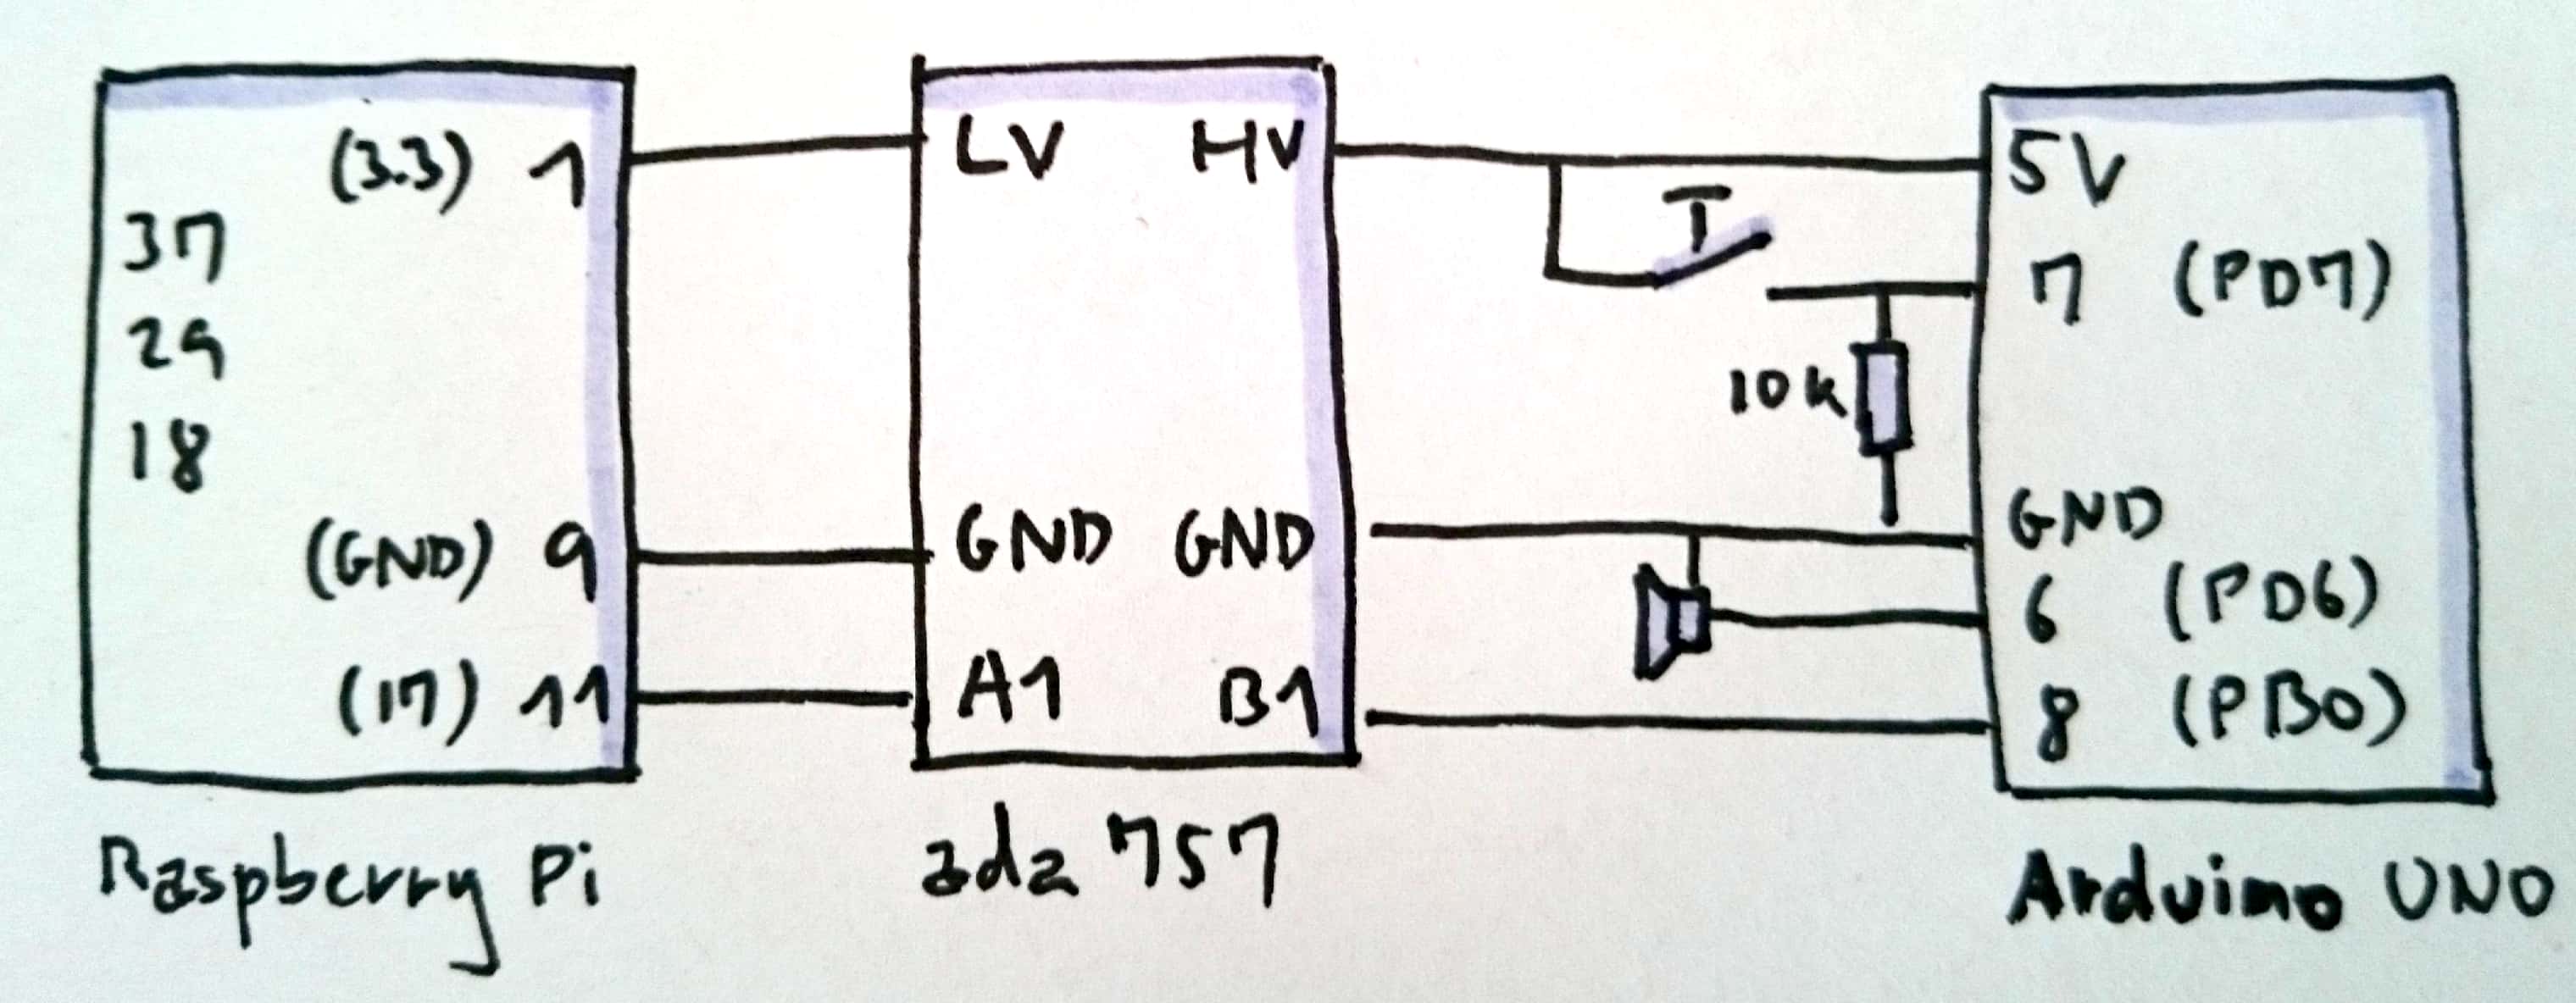 (3.3) 1
37
29
18
(GND) 9
(17) 11
Raspberry Pi
LV HV
GND GND
A1 B1
ada 757
T
10k
5V
7 (PD7)
GND
6 (PD6)
8 (PB0)
Arduino UNO